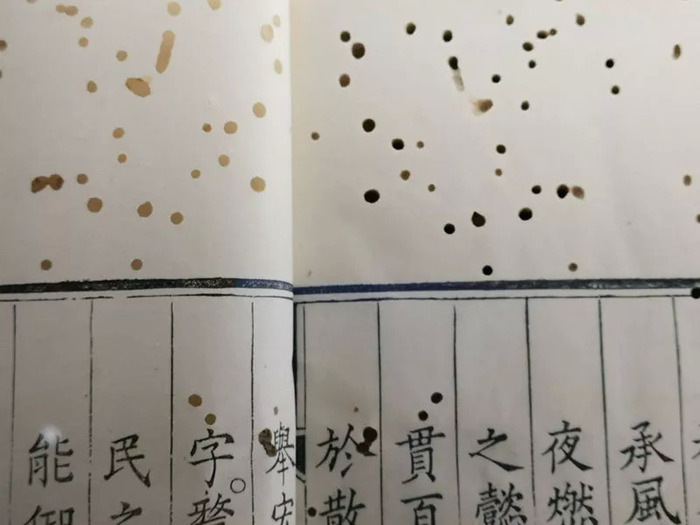 承風
夜燃
之懿
貫百
於散
舉安
字。
民之
能御